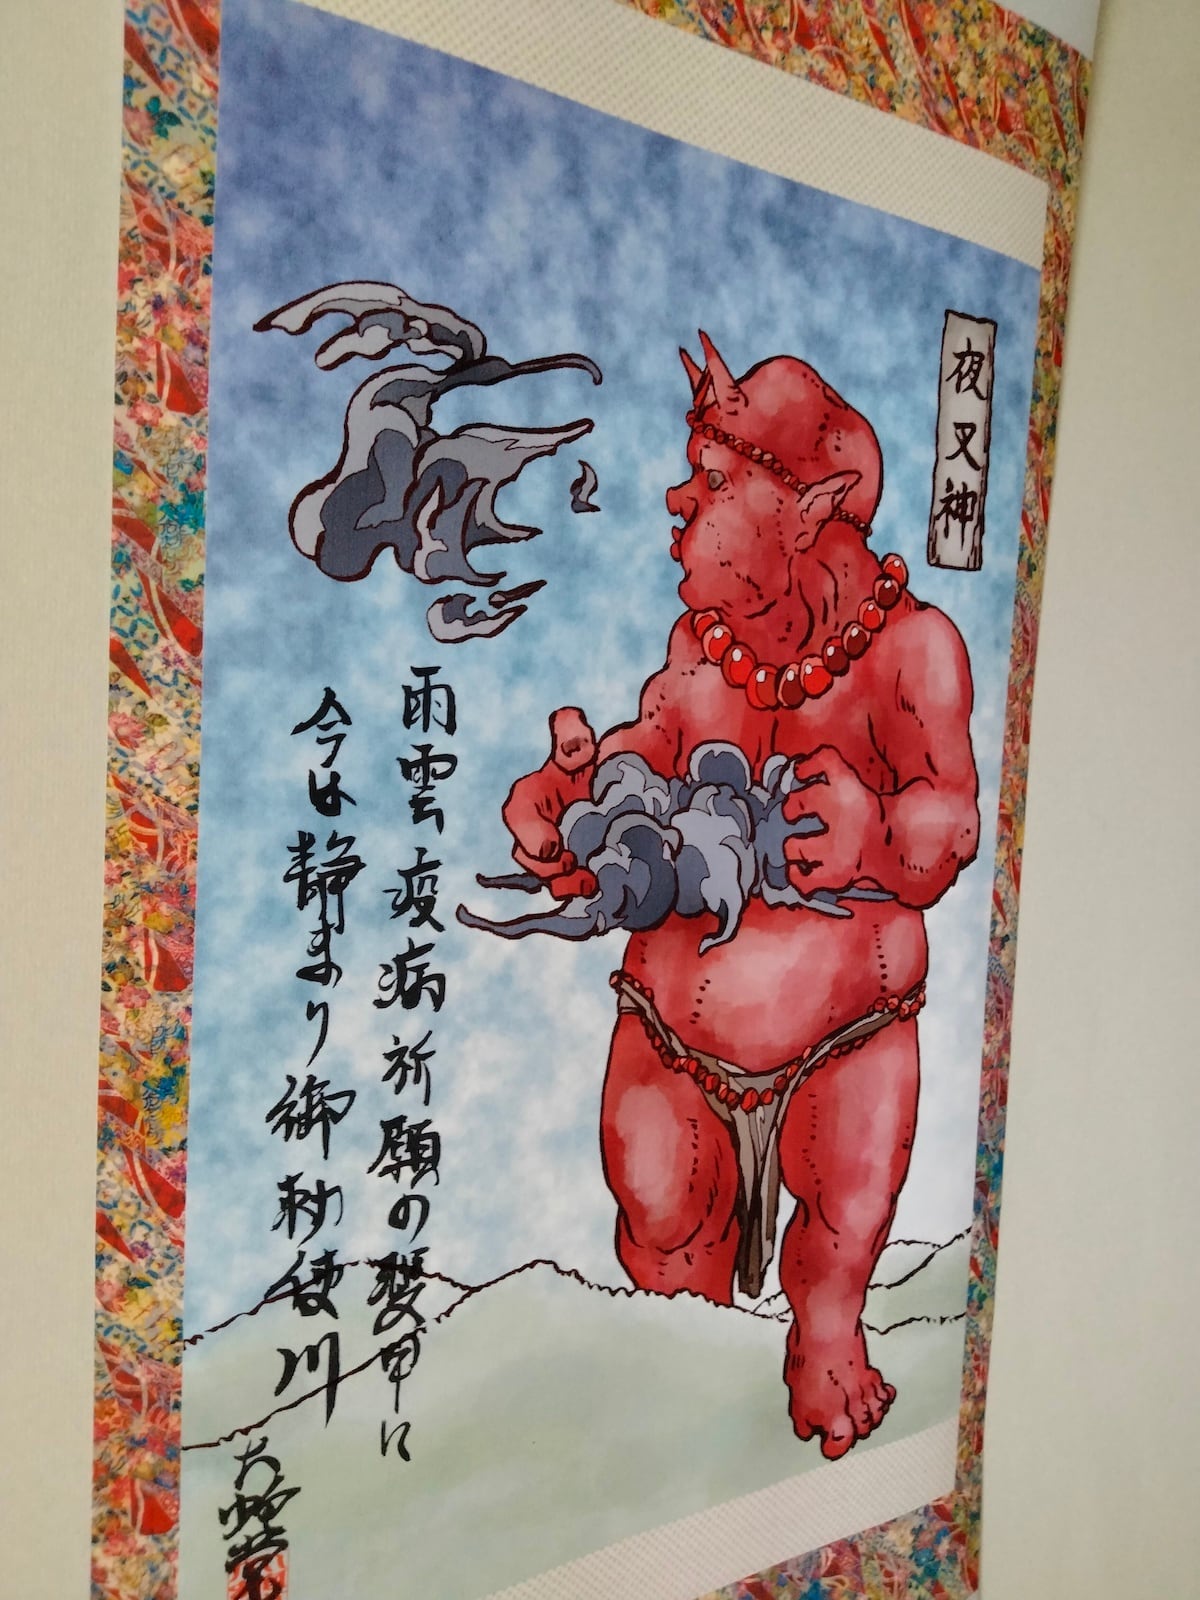 夜叉神
雨雲疫病祈願の甲に
今は静まり御勅使川
大蛇堂